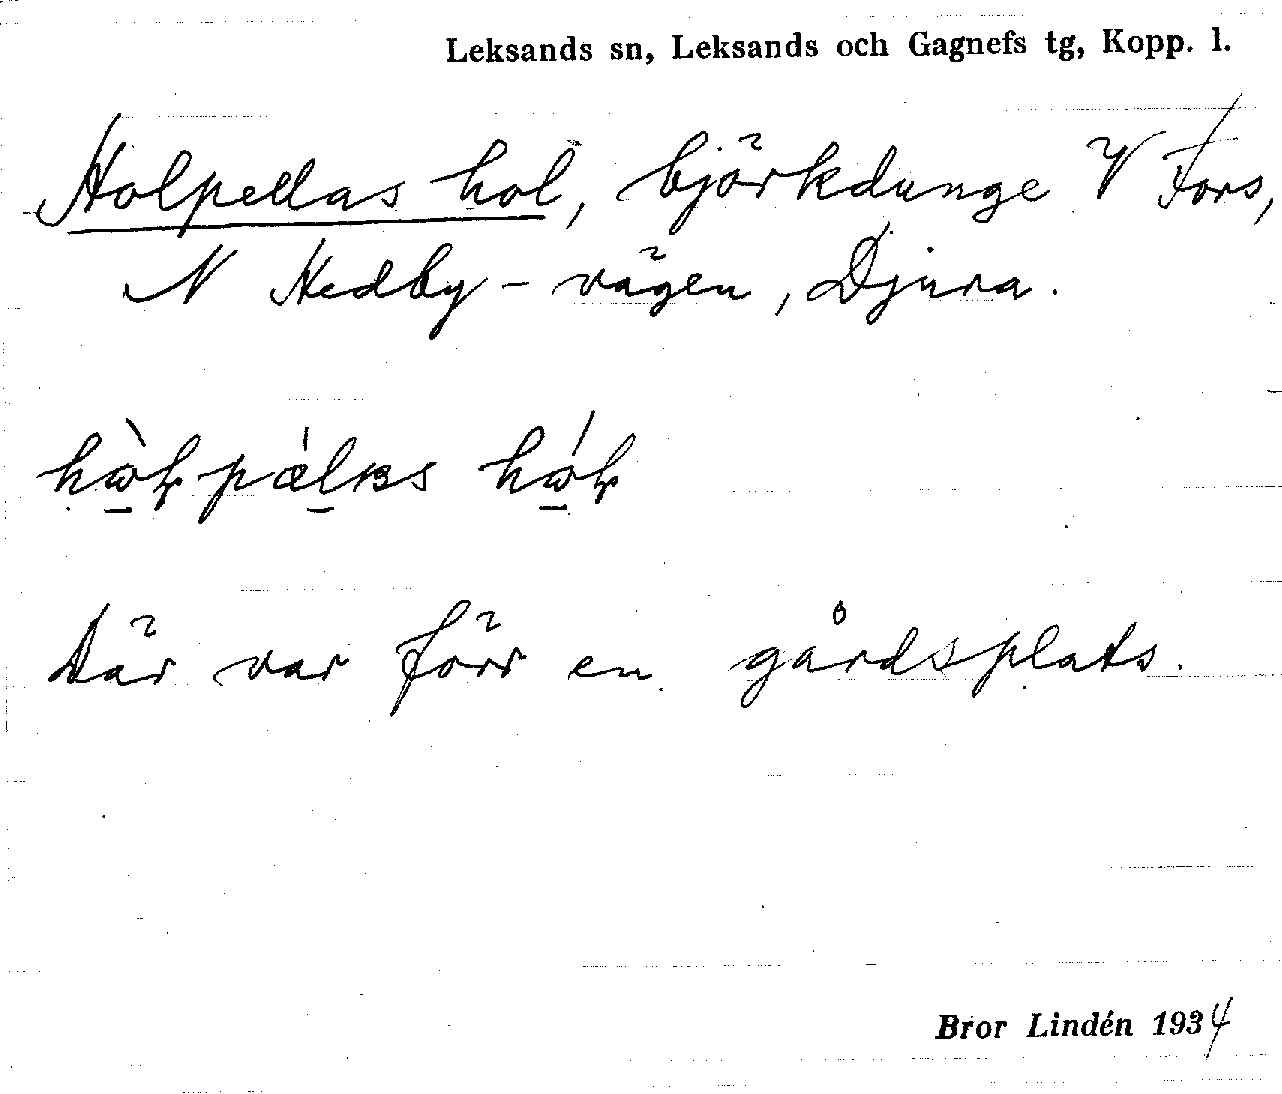 Leksands sn, Leksands och Gagnefs tg, Kopp. l.
Holpellas hol, björkdunge V Fors,
N Hedby-vägen, Djura.
Där var förr en gårdsplats.
Bror Lindén 1934